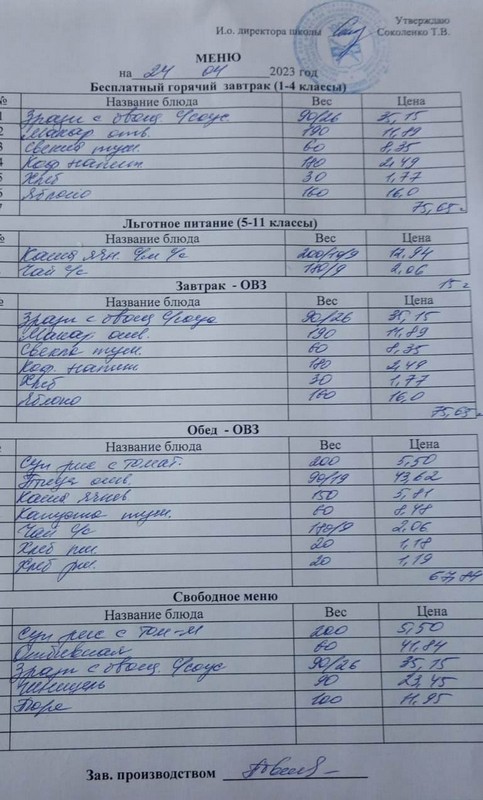 Утверждаю
И.о. директора школы Соколенко Т.В.
МЕНЮ
на 24 04 2023 год
Бесплатный горячий завтрак (1-4 классы)
№ Название блюда Вес Цена
1 Зразы с овощ. с/соус. 90/26 35,15
2 Макар отв. 190 11,89
3 Свекла туш. 60 8,35
4 Коф. напит. 180 2,49
5 Хлеб 30 1,77
6 Яблоко 160 16,0
7 75,65
Льготное питание (5-11 классы)
№ Название блюда Вес Цена
Каша ячн. с/м с/с 200/10/9 12,94
Чай с/с 180/9 2,06
Завтрак - ОВЗ 15
№ Название блюда Вес Цена
Зразы с овощ с/соус 90/26 35,15
Макар отв. 190 11,89
Свекла туш. 60 8,35
Коф. напит. 180 2,49
Хлеб 30 1,77
Яблоко 160 16,0
75,65
Обед - ОВЗ
Название блюда Вес Цена
Суп рис с томат. 200 5,50
Птица отв. 90/19 43,62
Каша ячнев 150 5,81
Капуста туш. 60 8,48
Чай с/с 180/9 2,06
Хлеб пш. 20 1,18
Хлеб рж. 20 1,19
67,84
Свободное меню
Название блюда Вес Цена
Суп рис с том-м 200 5,50
Отбивная 60 41,84
Зразы с овощ. с/соус 90/26 35,15
Шницель 90 23,45
Пюре 100 11,95
Зав. производством